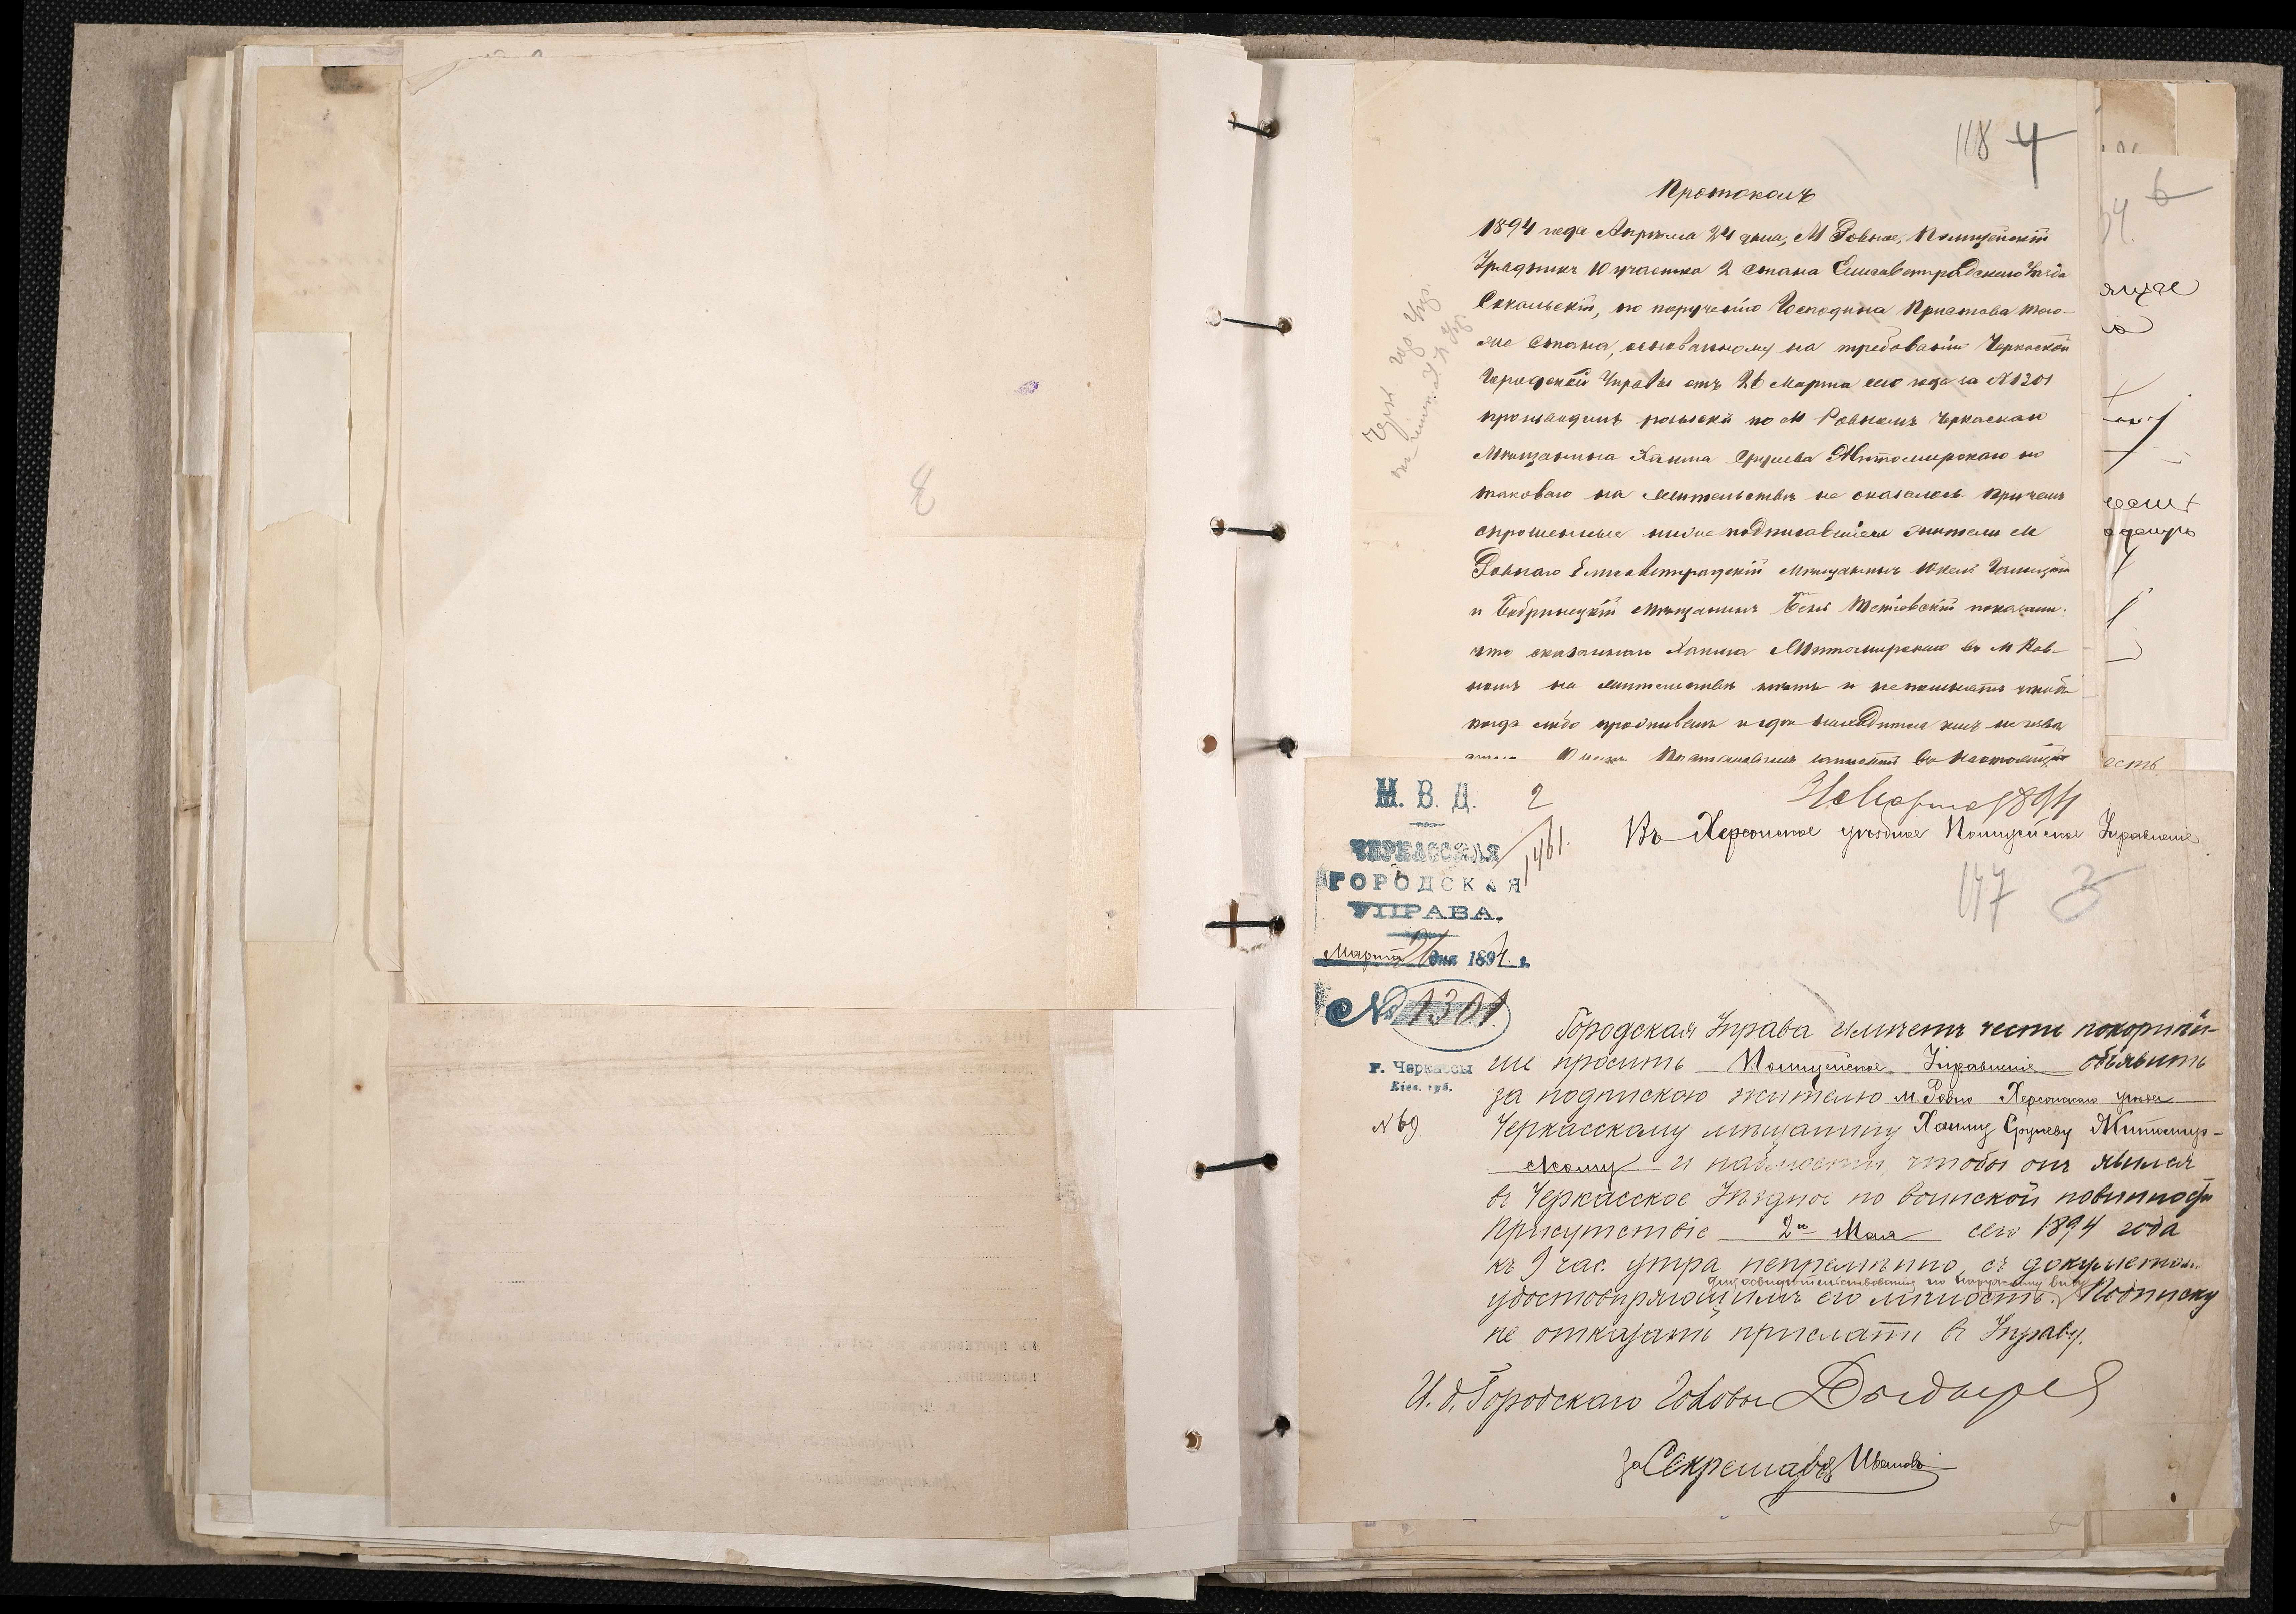 118 4
Протоколъ
1894 года Апрѣля 24 дня, М Ровное, Полицейскій
Урядникъ 10 участка 2 стана Елисаветградскаго Уѣзда
Сокальскій, по порученію Господина Пристава того-
же Стана, основанному на требованіи Черкаской
Городской Управы отъ 26 Марта сего года за № 1301
производилъ розыски по М Ровномъ Черкаскаго
Мѣщанина Хаима Сруліева Житомирскаго но
таковаго на жительствѣ не оказалось причемъ
спрошенные ниже подписавшіеся жители М
Ровнаго Елисаветградскій мѣщанинъ
и Бобринецкій мѣщанинъ показали:
что сказаннаго Хаима Житомирскаго въ М Ров-
номъ на жительствѣ нѣтъ и непомнятъ чтобы
когда либо проживалъ и гдѣ находится имъ не извѣ
О чемъ Постановилъ записать въ настоящій
6
М. В. Д. 2
ЧЕРКАССКАЯ
1461.
ГОРОДСКАЯ
УПРАВА.
Марта 26 дня 1894 г.
№ 1301.
г. Черкассы
Кіев. губ.
№ 69.
Въ Херсонское уѣздное Полицейское Управленіе.
117 3
Городская Управа имѣетъ честь покорнѣй-
ше просить Полицейское Управленіе объявить
за подпискою жителю м. Ровно Херсонскаго уѣзда
Черкасскому мѣщанину Хаиму Срулеву Житомир-
скому и наблюсти, чтобы онъ явился
въ Черкасское Уѣздное по воинской повинности
Присутствіе 2го Мая сего 1894 года
къ 9 час. утра непремѣнно, съ документомъ
для освидѣтельствованія по наружному виду
удостовѣряющимъ его личность. Подписку
не отказать прислать въ Управу.
И. д. Городскаго Головы
За Секретаря Ивановъ